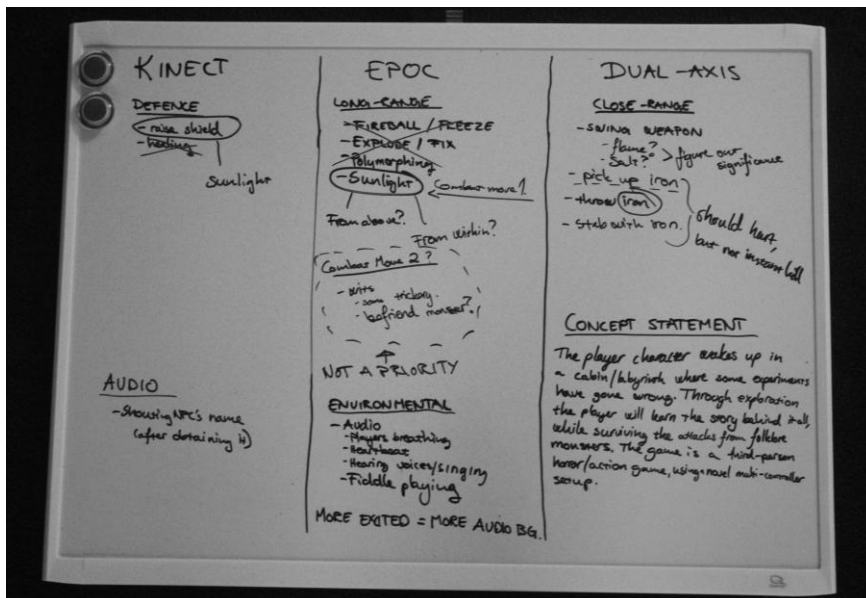 KINECT
DEFENCE
- raise shield
- healing
Sunlight
AUDIO
- Shouting NPC's name
(after obtaining it)
EPOC
LONG-RANGE
- FIREBALL / FREEZE
- EXPLODE / FIX
- Polymorphing
- Sunlight
Combat move 1
From above?
From within?
Combat Move 2?
- wits
- some trickery.
- befriend monster?
NOT A PRIORITY
ENVIRONMENTAL
- Audio
- Players breathing
- Heartbeat
- Hearing voices/singing
- Fiddle playing
MORE EXITED = MORE AUDIO BG.
DUAL-AXIS
CLOSE-RANGE
- SWING WEAPON
- flame?
- Salt?
> figure out
significance
- pick up iron
- throw iron
- stab with iron.
should hurt,
but not instant kill
CONCEPT STATEMENT
The player character wakes up in
a cabin/labyrinth where some experiments
have gone wrong. Through exploration
the player will learn the story behind it all,
while surviving the attacks from folklore
monsters. The game is a third-person
horror/action game, using a novel multi-controller
setup.